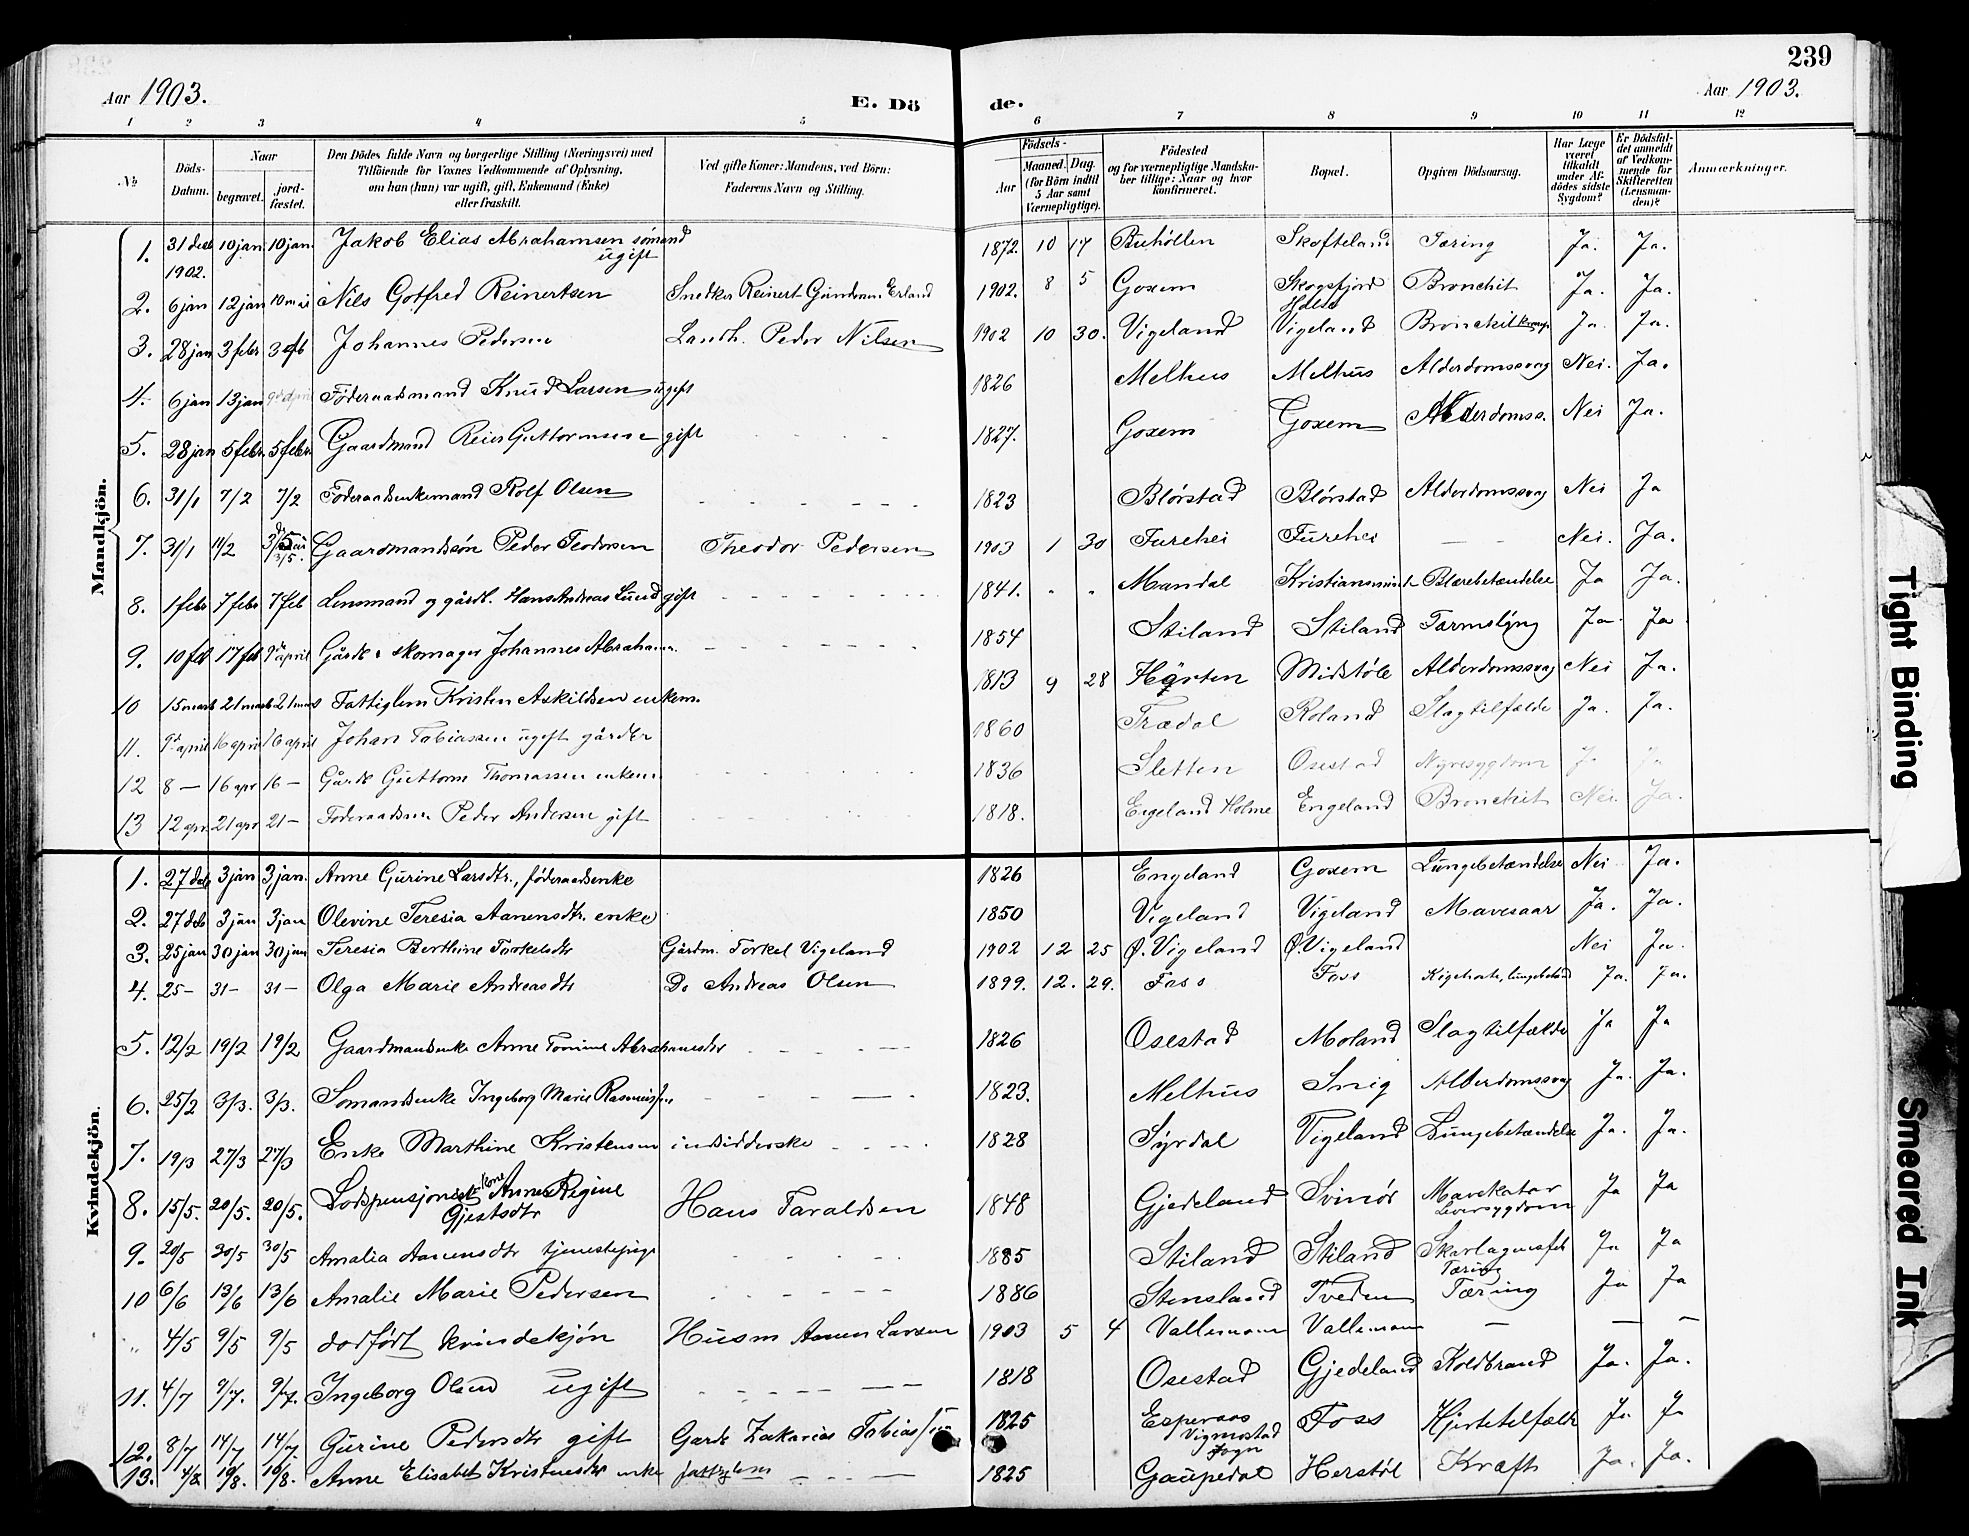 239
Aar 1903.
E. Dö de.
Aar 1903.
1 2 3 4 5 6 7 8 9 10 11 12
No
Döds-Datum.
Naar
begravet. jord-fæstet.
Den Dödes fulde Navn og borgerlige Stilling (Næringsvei) med
Tilföiende for Voxnes Vedkommende af Oplysning,
om han (hun) var ugift, gift, Enkemand (Enke)
eller fraskilt.
Ved gifte Koner: Mandens, ved Börn:
Faderens Navn og Stilling.
Födsels-
Aar Maaned. Dag.
(for Börn indtil
5 Aar samt
Værnepligtige).
Födested
og for værnepligtige Mandska-
ber tillige: Naar og hvor
konfirmeret.
Bopæl.
Opgiven Dödsaarsag.
Har Læge
været
tilkaldt
under Af-
dödes sidste
Sygdom?
Er Dödsfal-
det anmeldt
af Vedkom-
mende for
Skifteretten
(Lensman-
den)?
Anmærkninger.
Mandkjön.
1. 31 deb 1902. 10 jan 10 jan Jakob Elias Abrahamsen sømand ugift 1872. 10 17 Skofteland Tæring Ja. Ja.
2. 6 jan 12 jan 10 mai Nils Gotfred Reinertsen Snedker Reinert Erland 1902. 8 5 Goxem Skogsfjord Holse Bronchit Ja. Ja.
3. 28 jan 3 febr 3 feb Johannes Pedersen Landh. Peder Nilsen 1902 10 30. Vigeland Vigeland Bronchit Ja. Ja.
4. 6 jan 13 jan Föderaadsmand Knud Larsen ugift 1826 Melhus Melhus Alderdomssvag Nei. Ja.
5. 28 jan 5 febr. 5 febr. Gaardmand Reier Guttormsen gift 1827. Goxem Goxem Alderdomss. Nei Ja.
6. 31/1 7/2 7/2 Föderaadsenkemand Rolf Olsen 1823 Blörstad Blörstad Alderdomssvag Nei Ja
7. 31/1 11/2 3/5. Gaardmandssön Peder Teodorsen Theodor Pedersen 1903 1 30 Furehei Furehei — — Nei. Ja.
8. 1 febr 7 febr 7 feb Lensmand og gårdb. Hans Andreas Lund gift 1841. " " Mandal Blærebetændelse Ja Ja.
9. 10 feb 17 feb 9de april Gårdb & skomager Johannes Abraham. 1854 Stiland Stiland Tarmslyng Ja Ja
10 15 mars 21 mars 21 mars Fattiglem Kristen Askildsen enkem. 1813 9 28 Midtböe Alderdomssvag Nei Ja.
11. 9de april 16 april 16 april Johan Tobiassen ugift gårdbr 1860 Trædal Roland Slagtilfælde Ja. Ja.
12 8 — 16 apr 16 — Gårdb Guttorm Thomassen enkem 1836 Sletten Osestad Nyresygdom Ja Ja
13 12 apr. 21 apr 21 — Föderaadsm Peder Andersen gift 1818. Eigeland Holme Engeland Bronchit Nei. Ja.
Kvindekjön.
1. 27 deb 3 jan 3 jan. Anne Gurine Larsdtr., föderaadsenke 1826 Engeland Goxem Lungebetændelse Nei Ja.
2. 27 deb 3 jan 3 jan Olevine Teresia Aanensdtr. enke 1850 Vigeland Vigeland Mavesaar Ja. Ja.
3. 25 jan 30 jan 30 jan Teresia Berthine Torkelsdtr Gårdm. Torkel Vigeland 1902 12 25 Ø. Vigeland Ø. Vigeland Nei Ja.
4. 25 — 31 — 31 — Olga Marie Andreasdtr Do Andreas Olsen 1899. 12. 29. Foss Foss Kighoste, lungebetænd Ja. Ja.
5. 12/2 19/2 19/2 Gaardmandsenke Anne Tomine Abrahamsdtr 1826 Osestad Moland Slagtilfælde Ja Ja
6. 25/2 3/3. 3/3. Sømandsenke Ingeborg Marie 1823. Melhus Snig Alderdomssvag Ja. Ja.
7. 19/3 27/3 27/3 Enke Marthine Kristensen indsidderske 1828 Syrdal Vigeland Lungebetændelse Ja. Ja.
8. 15/5. 20/5. 20/5. Lodspensjonist kone Anne Regine Gjertsdtr Hans Taraldsen 1848 Gjedeland Svinör Mavekatar Leversygdom Ja Ja
9. 20/5 30/5 30/5 Amalia Aanensdtr tjenestepige 1885 Stiland Stiland Skarlagensfeb Tæring Ja Ja
10 6/6 13/6 13/6 Amalie Marie Pedersen 1886 Stensland Tveden Tæring Ja Ja
" 4/5 9/5 9/5 dødfødt kvindekjön Husm Aanen Larsen 1903 5 4 Vallemoen Vallemoen — — —
11. 4/7 9/7. 9/7. Ingeborg Olsen ugift 1818 Osestad Gjedeland Koldbrand Ja. Ja.
12. 8/7 14/7 14/7 Gurine Pedersdtr gift Gardb Zakarias Tobiassen 1825 Esperaas Vigmostad sogn Foss Hjertetilfælde Ja Ja
13. 4/8 10/8. 10/8. Anne Elisabet Kristensdtr enke fattiglem 1825 Gaupedal Herstöl Kræft Ja. Ja.
Tight Binding
Smeared Ink